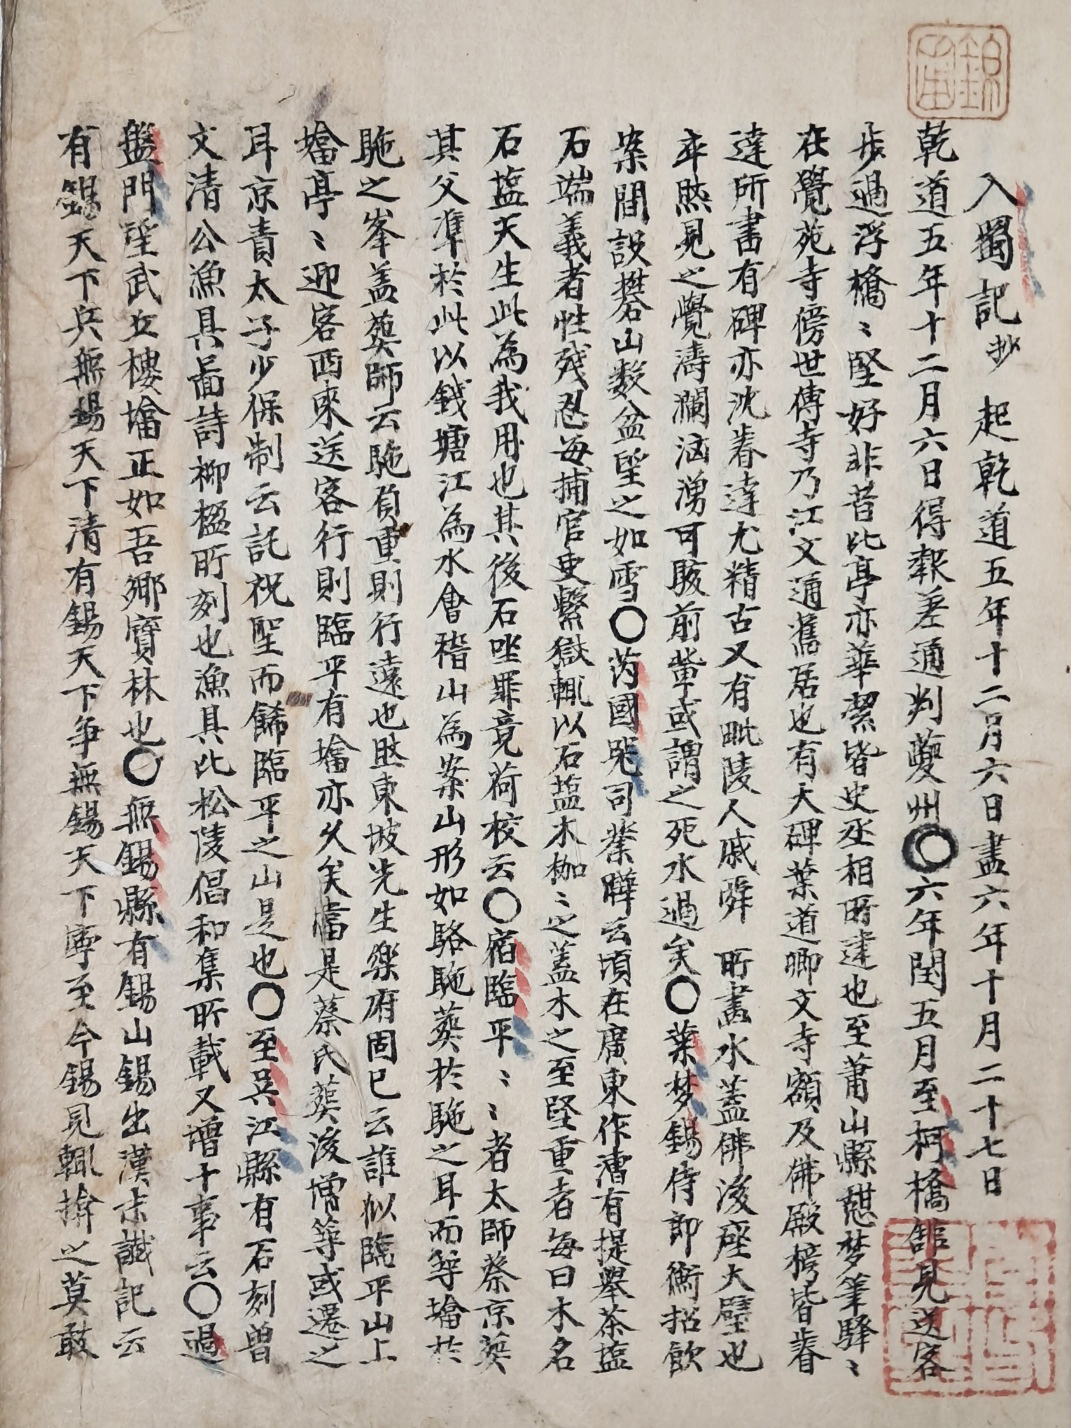 入蜀記抄 起乾道五年十二月六日盡六年十月二十七日
乾道五年十二月六日得報差通判夔州〇六年閏五月至柯橋舘見送客
步過浮橋〻堅好非昔比亭亦華潔皆史丞相所建也至蕭山縣憇夢筆驛〻
在覺苑寺傍世傳寺乃江文通舊居也有大碑葉道卿文寺額及佛殿榜皆
達所書有碑亦沈睿達尤精古又有毗陵人戚舜 所畫水蓋佛後座大壁也
卒然見之覺濤瀾洶湧可駭前輩或謂之死水過矣〇葉夢錫侍郎衡招飲
案間設礬山數盆望之如雪〇芮國器司業曄云頃在廣東作漕有提舉茶塩
石端義者性殘忍每捕官吏繫獄輒以石塩木枷〻之蓋木之至堅重者每曰木名
石塩天生此為我用也其後石坐罪竟荷校云〇宿臨平〻〻者太師蔡京葬
其父準於此以錢塘江為水會稽山為案山形如駱駞葬於駞之耳而築塔於
駞之峯盖葬師云駞負重則行遠也然東坡先生樂府固已云誰似臨平山上
塔亭〻迎客西來送客行則臨平有塔亦久矣當是蔡氏葬後增築或遷之
耳京責太子少保制云託祝聖而餙臨平之山是也〇至吳江縣有石刻曾
文清公漁具啚詩柳楹所刻也漁具比松陵倡和集所載又增十事云〇過
盤門望武丘樓塔正如吾鄉寶林也〇無錫縣有錫山錫出漢末讖記云
有錫天下兵無錫天下清有錫天下争無錫天下寧至今錫見輒揜之莫敢
錦